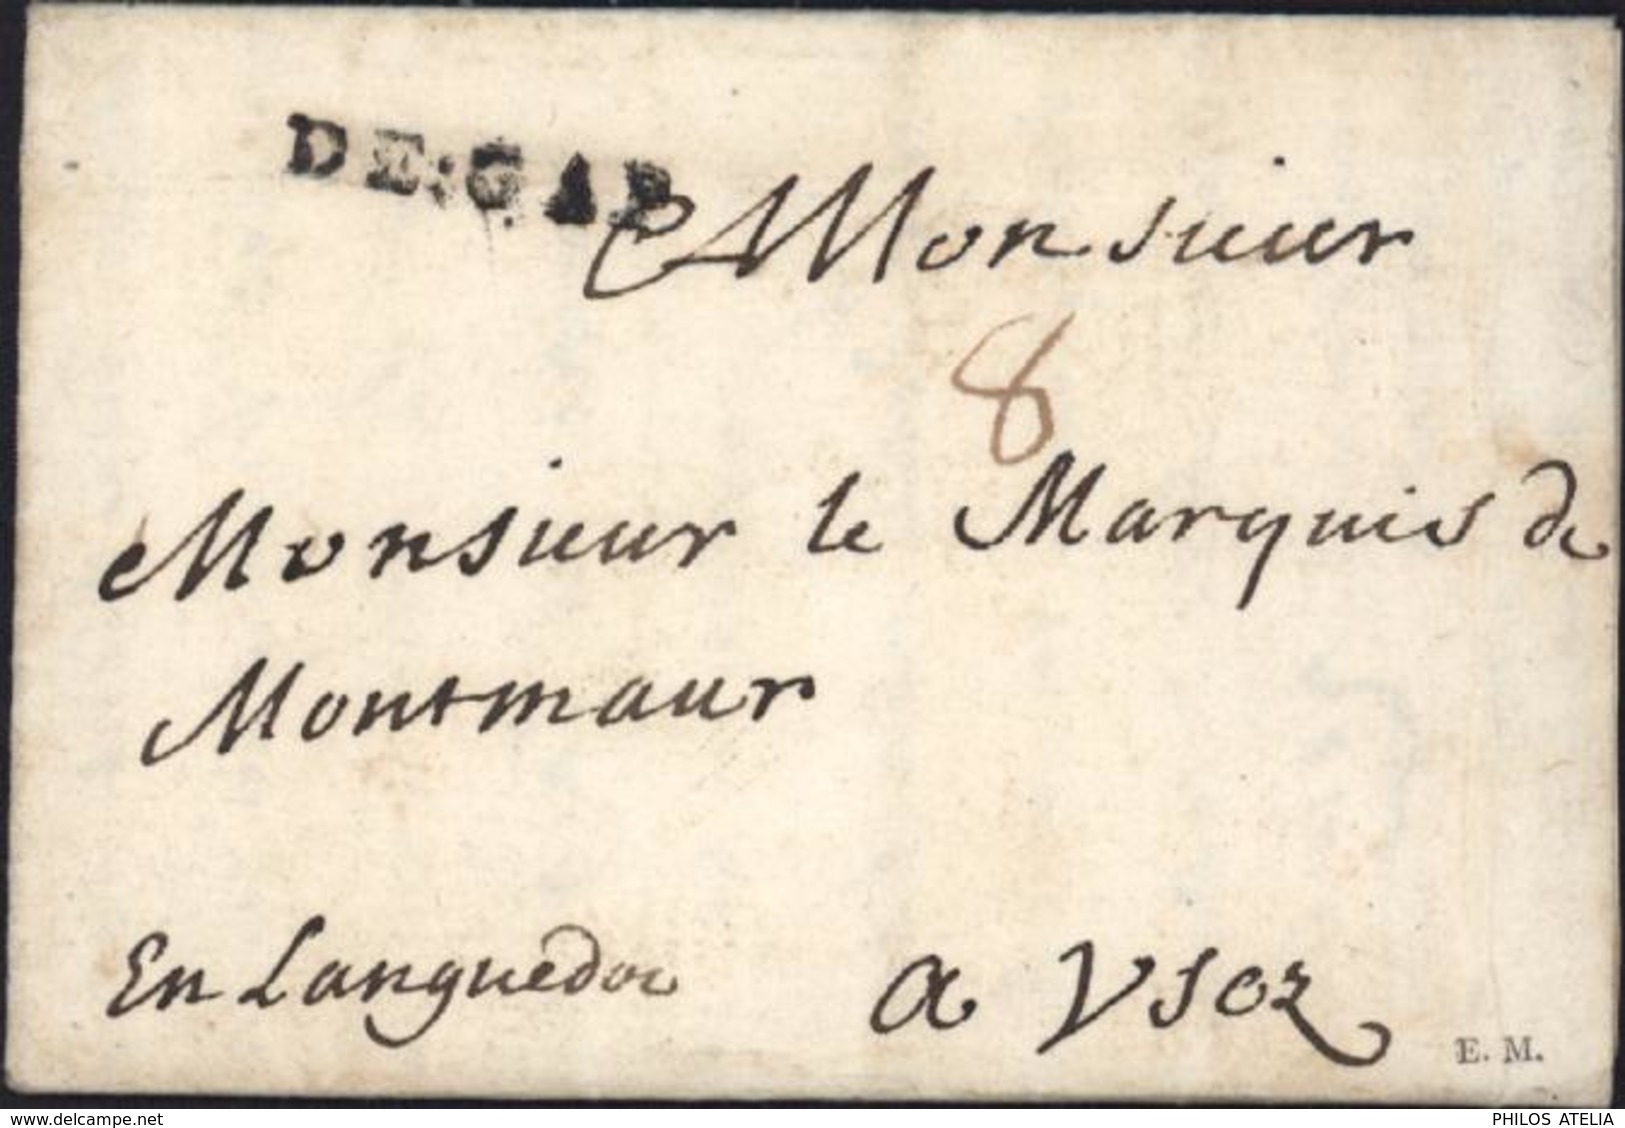 DE:GAP
Monsieur
8
Monsieur le Marquis de
Montmaur
En Languedoc a Vsez
E. M.
delcampe.net PHILOS ATELIA